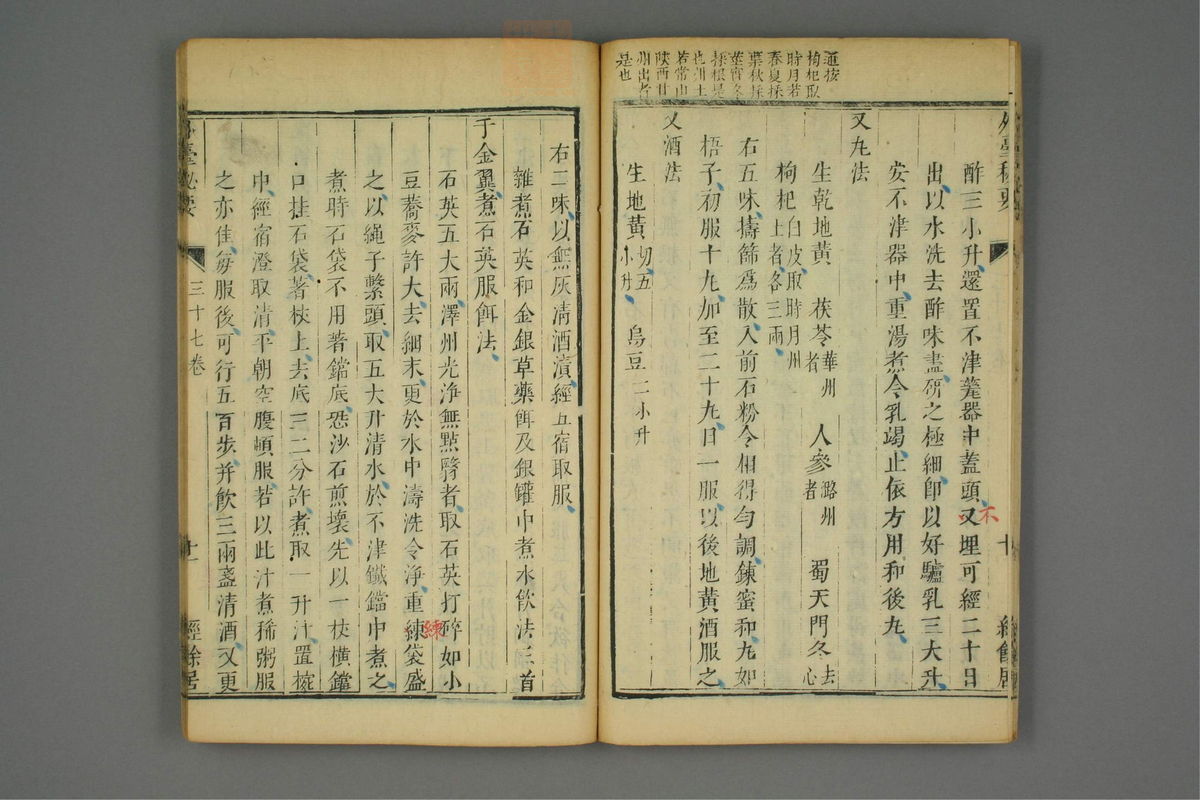 外臺秘要
十
經餘居
通按
枸杞取
時月若
春夏採
葉秋採
莖實冬
採根是
也州土
若常山
陝西甘
州出者
是也
酢三小升還置不津甕器中蓋頭又埋可經二十日
不
出以水洗去酢味盡研之極細即以好驢乳三大升
安不津器中重湯煮令乳竭止依方用和後丸
又丸法
生乾地黃 茯苓華州者 人參潞州者 蜀天門冬去心
枸杞白皮取時月州土者各三兩
右五味擣篩為散入前石粉令相得勻調鍊蜜和丸如
梧子初服十丸加至二十丸日一服以後地黃酒服之
又酒法
生地黃切五小升 烏豆二小升
右二味以無灰清酒漬經五宿取服
雜煮石英和金銀草藥餌及銀罐中煮水飲法三首
千金翼煮石英服餌法
石英五大兩澤州光淨無點翳者取石英打碎如小
豆蕎麥許大去細末更於水中濤洗令淨重練袋盛
練
之以繩子繫頭取五大升清水於不津鐵鐺中煮之
煮時石袋不用著鐺底恐沙石煎壞先以一枝橫鐺
口挂石袋著枝上去底三二分許煮取一升汁置椀
中經宿澄取清平朝空腹頓服若以此汁煮稀粥服
之亦佳每服後可行五百步并飲三兩盞清酒又更
外臺秘要
三十七卷
十一
經餘居